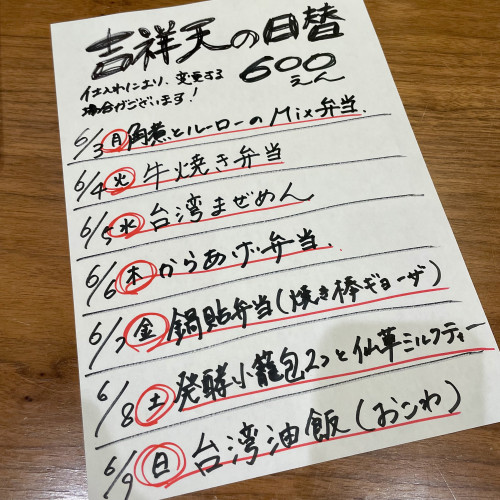 吉祥天の日替
仕入れにより、変更する
場合がございます!
600
えん
6/3 月 角煮とルーローのMix弁当.
6/4 火 牛焼き弁当
6/5 水 台湾まぜめん
6/6 木 からあげ弁当.
6/7 金 鍋貼弁当(焼き棒ギョーザ)
6/8 土 発酵小籠包2つと仙草ミルクティー
6/9 日 台湾油飯(おこわ)